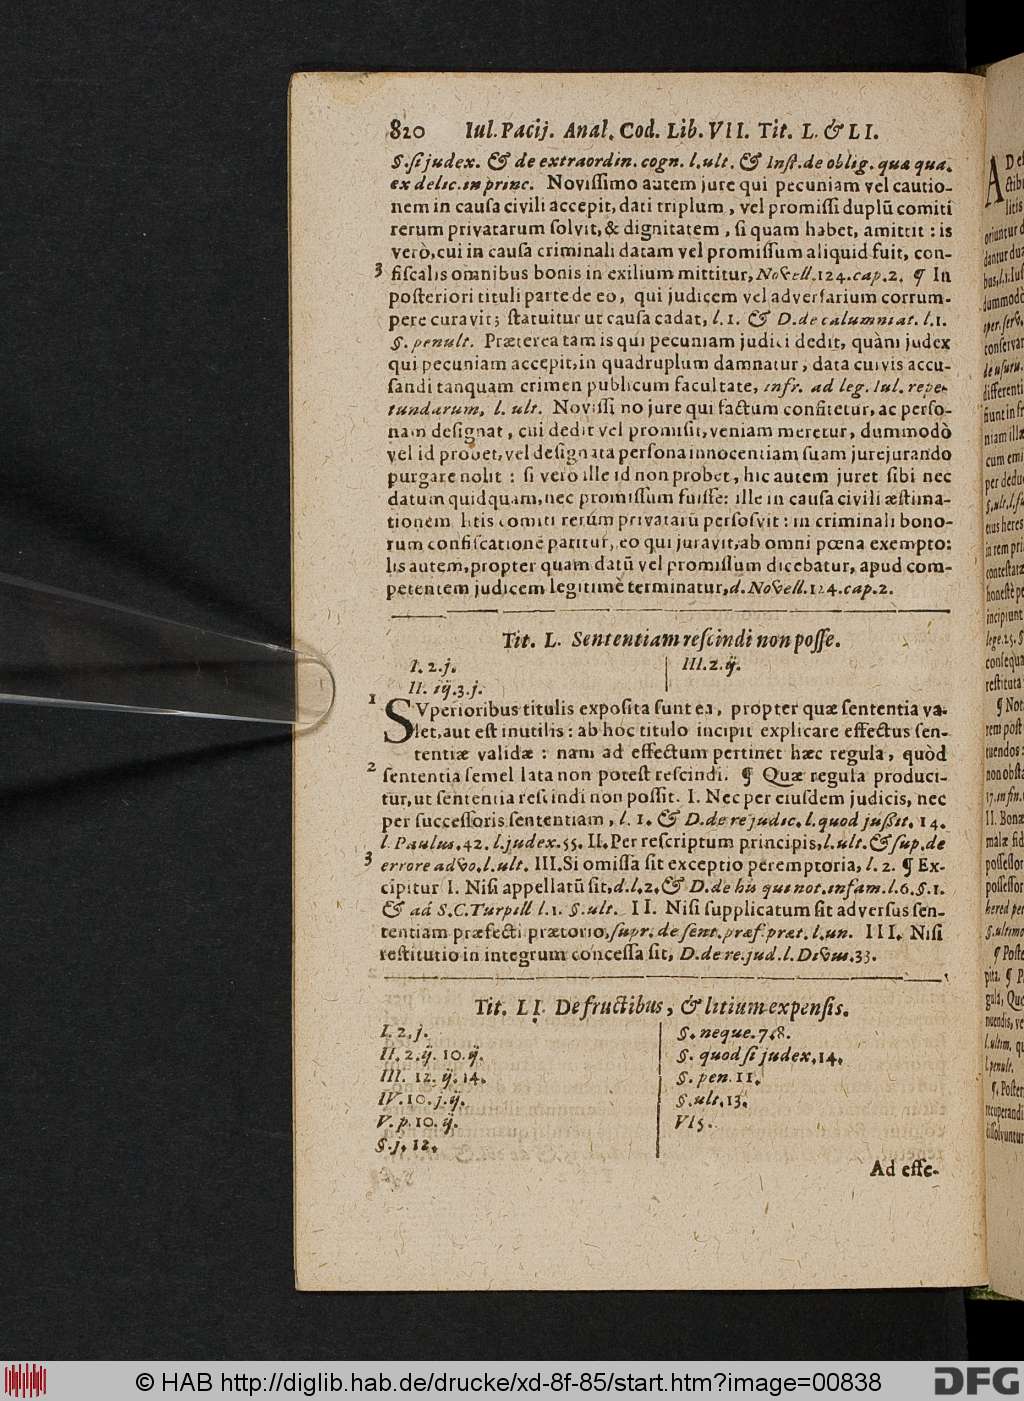 820 Iul. Pacij. Anal. Cod. Lib. VII. Tit. L. & LI.
§. si judex. & de extraordin. cogn. l. ult. & Inst. de oblig. quæ quæ.
ex delic. in princ. Novissimo autem jure qui pecuniam vel cautio-
nem in causa civili accepit, dati triplum, vel promissi duplū comiti
rerum privatarum solvit, & dignitatem, si quam habet, amittit: is
verò, cui in causa criminali datam vel promissum aliquid fuit, con-
3 fiscalis omnibus bonis in exilium mittitur, Novell. 124. cap. 2. ¶ In
posteriori tituli parte de eo, qui judicem vel adversarium corrum-
pere curavit; statuitur ut causa cadat, l. 1. & D. de calumniat. l. 1.
§. penult. Præterea tam is qui pecuniam judici dedit, quàm judex
qui pecuniam accepit, in quadruplum damnatur, data cuivis accu-
sandi tanquam crimen publicum facultate, infr. ad leg. Iul. repe-
tundarum, l. ult. Novissi no jure qui factum confitetur, ac perso-
nam designat, cui dedit vel promisit, veniam meretur, dummodò
vel id probet, vel designata persona innocentiam suam jurejurando
purgare nolit: si vero ille id non probet, hic autem juret sibi nec
datum quidquam, nec promissum fuisse: ille in causa civili æstima-
tionem litis comiti rerum privatarū persosvit: in criminali bono-
rum confiscationē patitur, eo qui juravit, ab omni pœna exempto:
lis autem, propter quam datū vel promissum dicebatur, apud com-
petentem judicem legitimè terminatur, d. Novell. 124. cap. 2.
Tit. L. Sententiam rescindi non posse.
I. 2. j.
II. iij. 3. j.
III. 2. ij.
1 SVperioribus titulis exposita sunt ea, propter quæ sententia va-
let, aut est inutilis: ab hoc titulo incipit explicare effectus sen-
tentiæ validæ: nam ad effectum pertinet hæc regula, quòd
2 sententia semel lata non potest rescindi. ¶ Quæ regula produci-
tur, ut sententia rescindi non possit. I. Nec per eiusdem judicis, nec
per successoris sententiam, l. 1. & D. de re judic. l. quod jußit. 14.
l. Paulus. 42. l. judex. 55. II. Per rescriptum principis, l. ult. & sup. de
3 errore advo. l. ult. III. Si omissa sit exceptio peremptoria, l. 2. ¶ Ex-
cipitur I. Nisi appellatū sit, d. l. 2. & D. de his qui not. infam. l. 6. §. 1.
& ad S. C. Turpill l. 1. §. ult. II. Nisi supplicatum sit adversus sen-
tentiam præfecti prætorio, supr. de sent. præf. præt. l. un. III. Nisi
restitutio in integrum concessa sit, D. de re. jud. l. Divus. 33.
Tit. LI. De fructibus, & litium expensis.
I. 2. j.
II. 2. ij. 10. ij.
III. 12. ij. 14.
IV. 10. j. ij.
V. p. 10. ij.
§. j. 12.
§. neque. 7. 8.
§. quod si judex. 14.
§. pen. 11.
§. ult. 13.
VI 5.
Ad effe-
© HAB http://diglib.hab.de/drucke/xd-8f-85/start.htm?image=00838
DFG